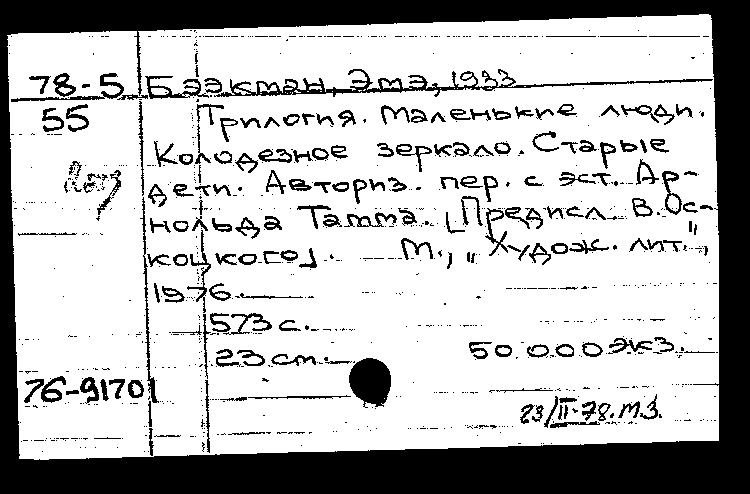 78-5 Бээкман, Эмэ, 1933
55 Трилогия. Маленькие люди.
Колодезное зеркало. Старые
дети. Авториз. пер. с эст. Ар-
нольда Тамма. [Предисл. В. Ос-
коцкого]. М., „Худож. лит.",
1976.
573 с.
23 см. 50 000 экз.
76-91701
23/II-78. М.З.